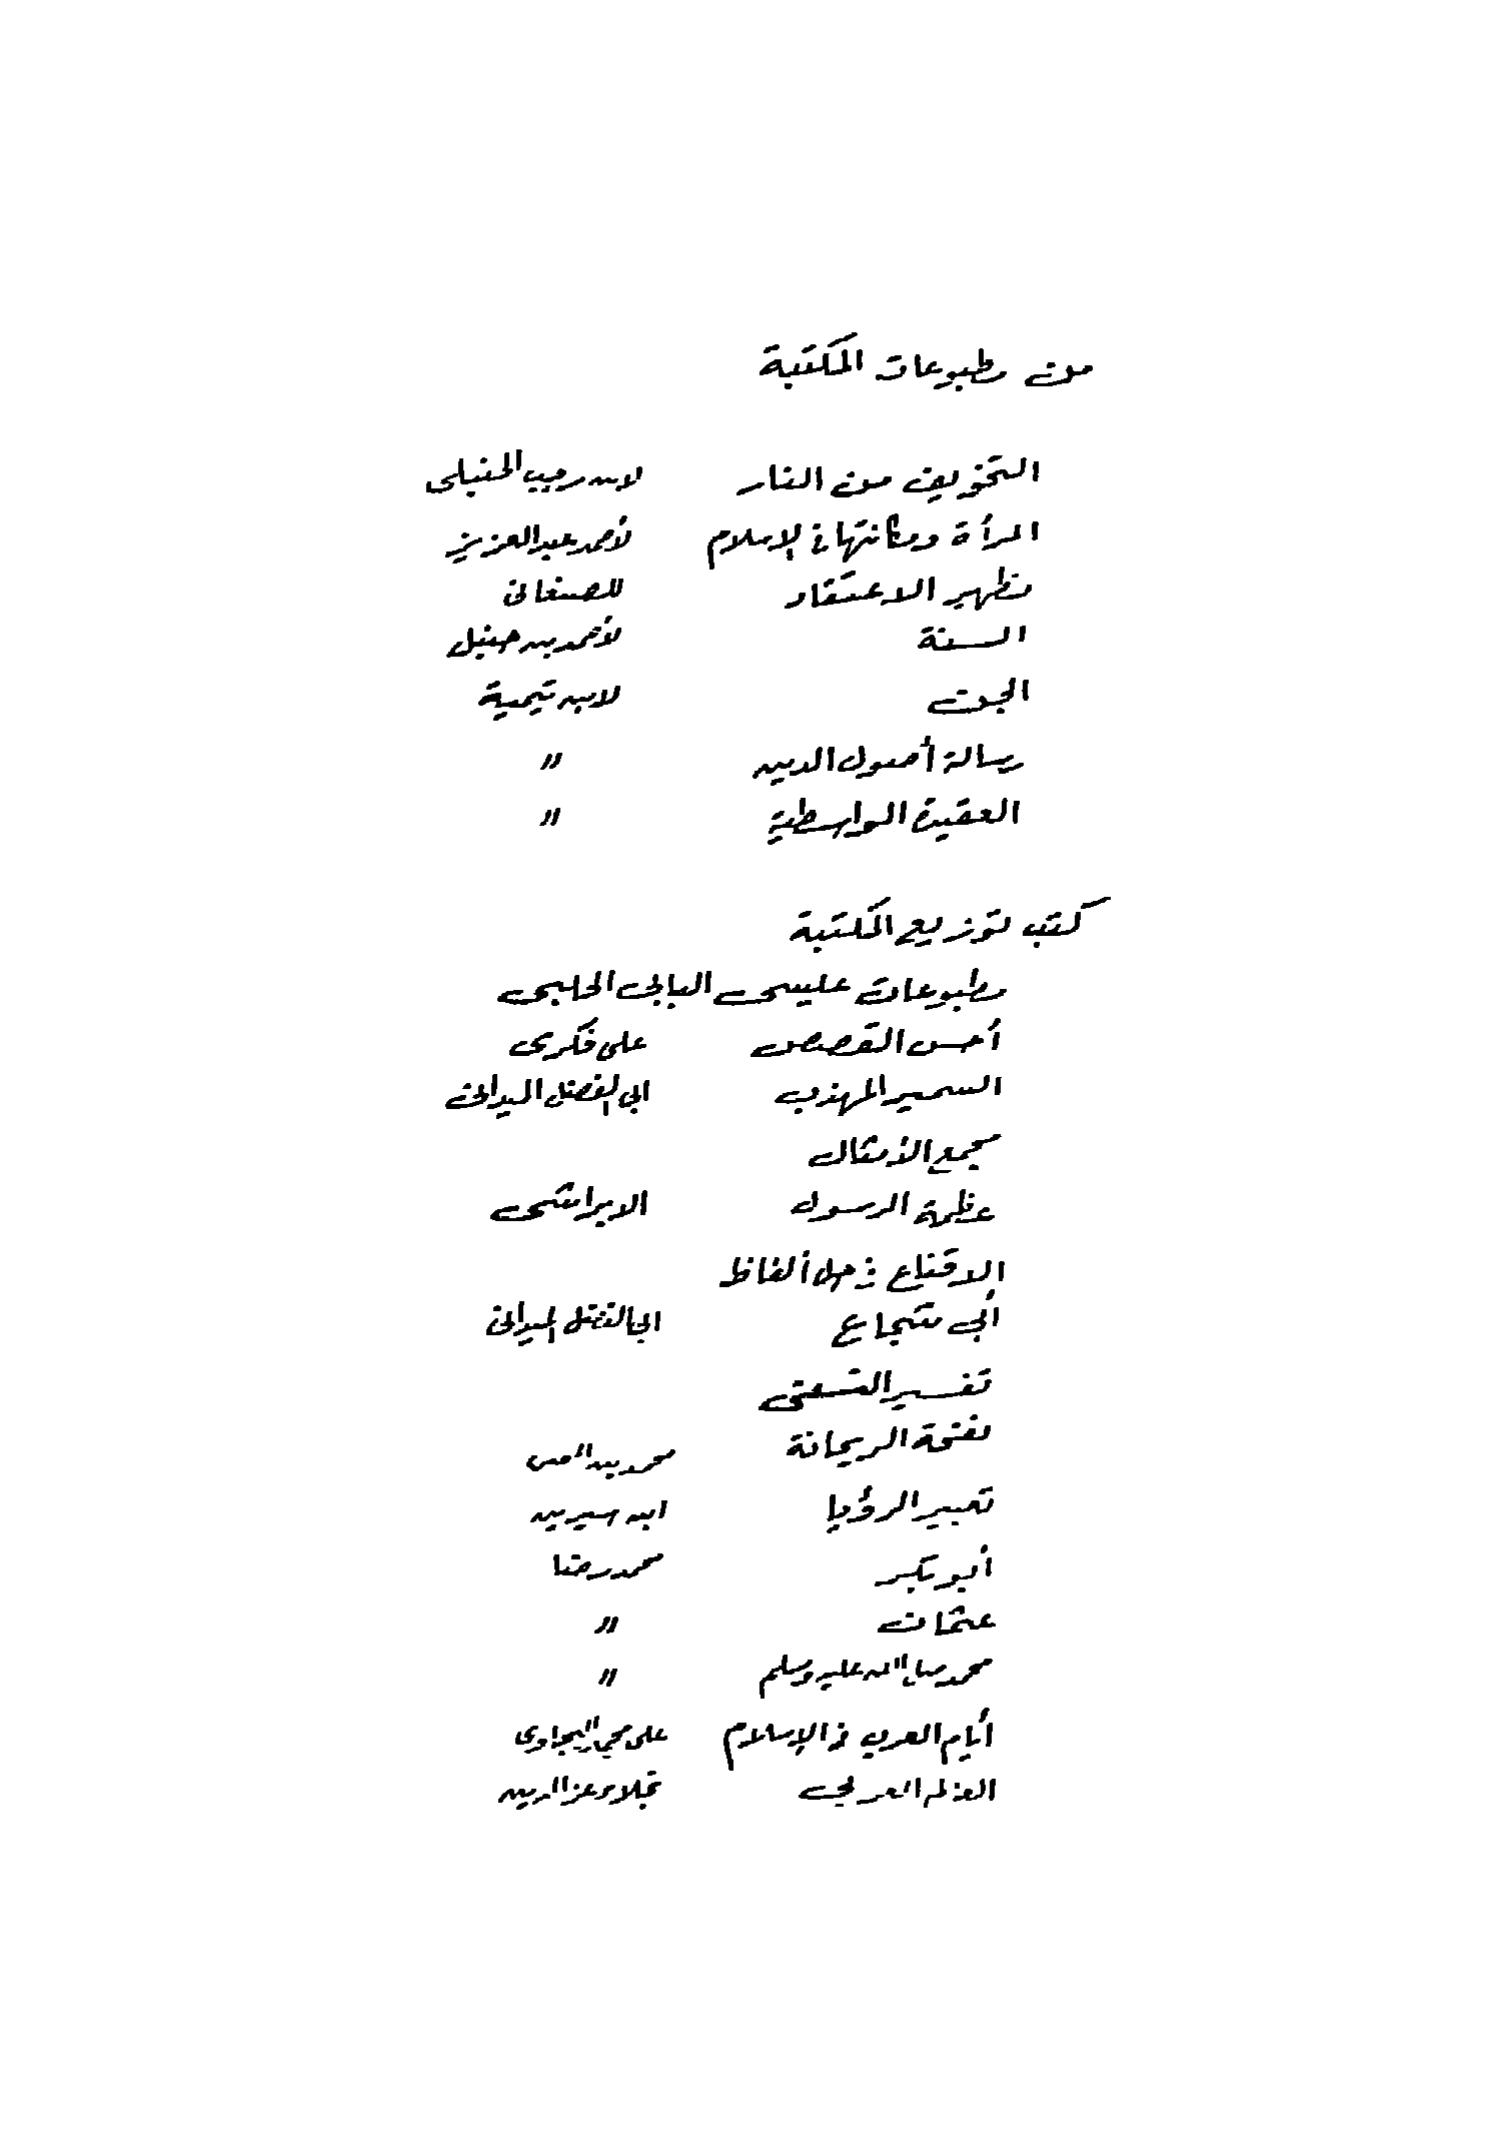 من مطبوعات المكتبة
التخويف من النار لابن رجب الحنبلى
المرأة ومكانتها فى الإسلام لأحمد عبد العزيز
تطهير الاعتقاد للصنعانى
السنة لأحمد بن حنبل
الجن لابن تيمية
رسالة أصول الدين "
العقيدة الواسطية "
كتب توزيع المكتبة
مطبوعات عيسى البابى الحلبى
أحسن القصص على فكرى
السمير المهذب ابى الفضل الميدانى
مجمع الأمثال
عظمة الرسول الابراشى
الاقناع فى حل ألفاظ
أبى شجاع ابى الفضل الميدانى
تفسير النسفى
نفحة الريحانة محمد
تعبير الرؤيا ابن سيرين
أبو بكر محمد رضا
عثمان "
محمد صلى الله عليه وسلم "
أيام العرب فى الإسلام على محمد البجاوى
العالم العربى نجلاء عز الدين